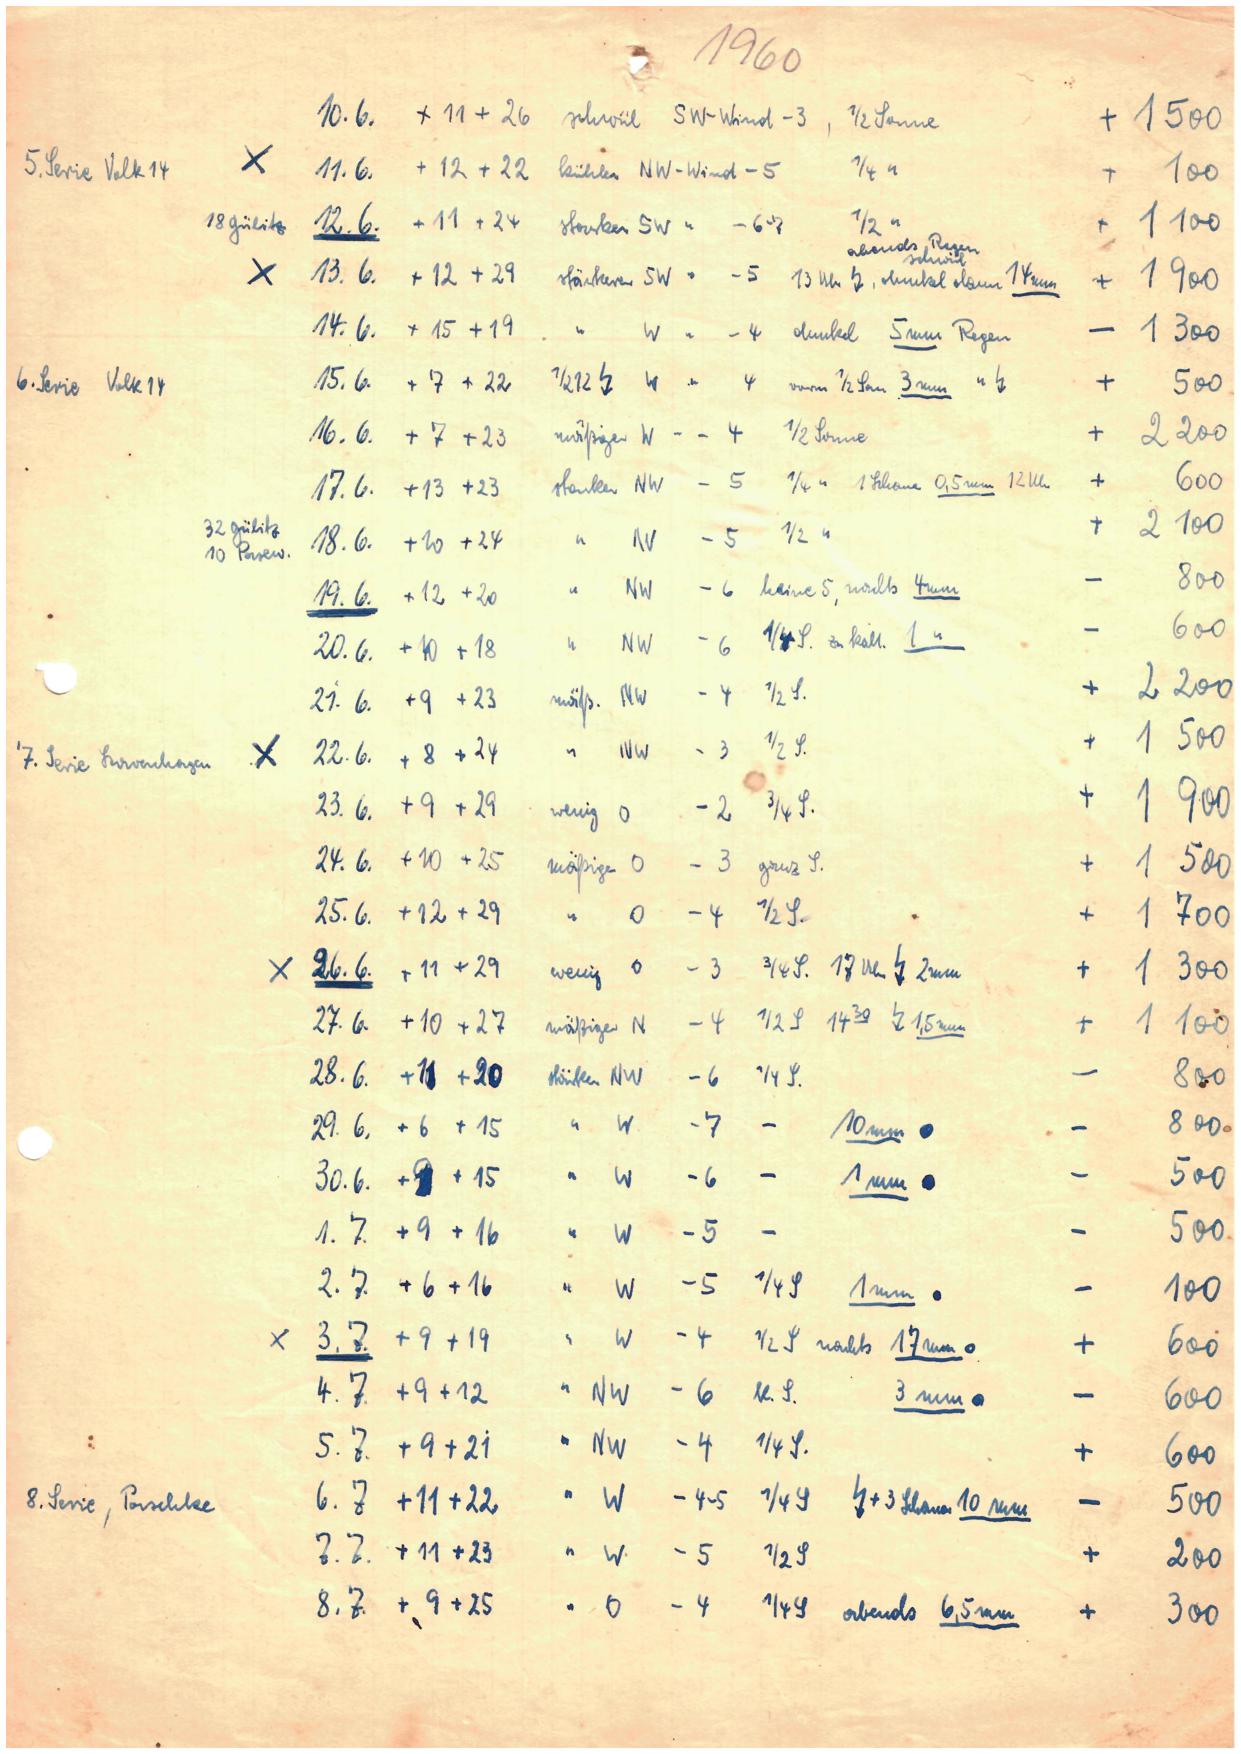 1960
10.6. + 11 + 26 schwül SW-Wind - 3, 1/2 Sonne + 1 500
5. Serie Volk 14 X 11.6. + 12 + 22 kühler NW-Wind - 5 1/4 " + 100
18 Gülitz 12.6. + 11 + 24 starker SW " - 6-7 1/2 " + 1 100
abends Regen
schwül
X 13.6. + 12 + 29 stärkerer SW " - 5 13 Uhr ↯, dunkel dann 14mm + 1 900
14.6. + 15 + 19 " W " - 4 dunkel 5mm Regen - 1 300
6. Serie Volk 14 15.6. + 7 + 22 1/212 ↯ W " 4 vorm 1/2 Son 3mm " ↯ + 500
16.6. + 7 + 23 mäßiger W - - 4 1/2 Sonne + 2 200
17.6. +13 +23 starker NW - 5 1/4 " 1 Schauer 0,5mm 12 Uhr + 600
32 Gülitz
10 18.6. +10 +24 " NW - 5 1/2 " + 2 100
19.6. +12 +20 " NW - 6 keine S, nachts 4mm - 800
20.6. +10 +18 " NW - 6 1/4 S. zu kalt. 1 " - 600
21.6. +9 +23 mäß. NW - 4 1/2 S. + 2 200
7. Serie X 22.6. + 8 + 24 " NW - 3 1/2 S. + 1 500
23.6. +9 +29 wenig O - 2 3/4 S. + 1 900
24.6. +10 +25 mäßiger O - 3 ganz S. + 1 500
25.6. +12 +29 " O - 4 1/2 S. + 1 700
X 26.6. + 11 + 29 wenig O - 3 3/4 S. 17 Uhr ↯ 2mm + 1 300
27.6. +10 +27 mäßiger N - 4 1/2 S 14 30 ↯ 1,5mm + 1 100
28.6. +11 +20 starker NW - 6 1/4 S. - 800
29.6. + 6 + 15 " W - 7 - 10mm • - 800
30.6. +9 + 15 " W - 6 - 1mm • - 500
1.7. + 9 + 16 " W - 5 - - 500
2.7. + 6 + 16 " W - 5 1/4 S 1mm • - 100
X 3.7. + 9 + 19 " W - 4 1/2 S nachts 17mm • + 600
4.7. +9 +12 " NW - 6 k. S. 3mm • - 600
5.7. + 9 + 21 " NW - 4 1/4 S. + 600
8. Serie, Paschke 6.7 +11 +22 " W - 4-5 1/4 S ↯ + 3 Schauer 10 mm - 500
7.7. + 11 +23 " W - 5 1/2 S + 200
8.7. + 9 +25 " O - 4 1/4 S abends 6,5mm + 300